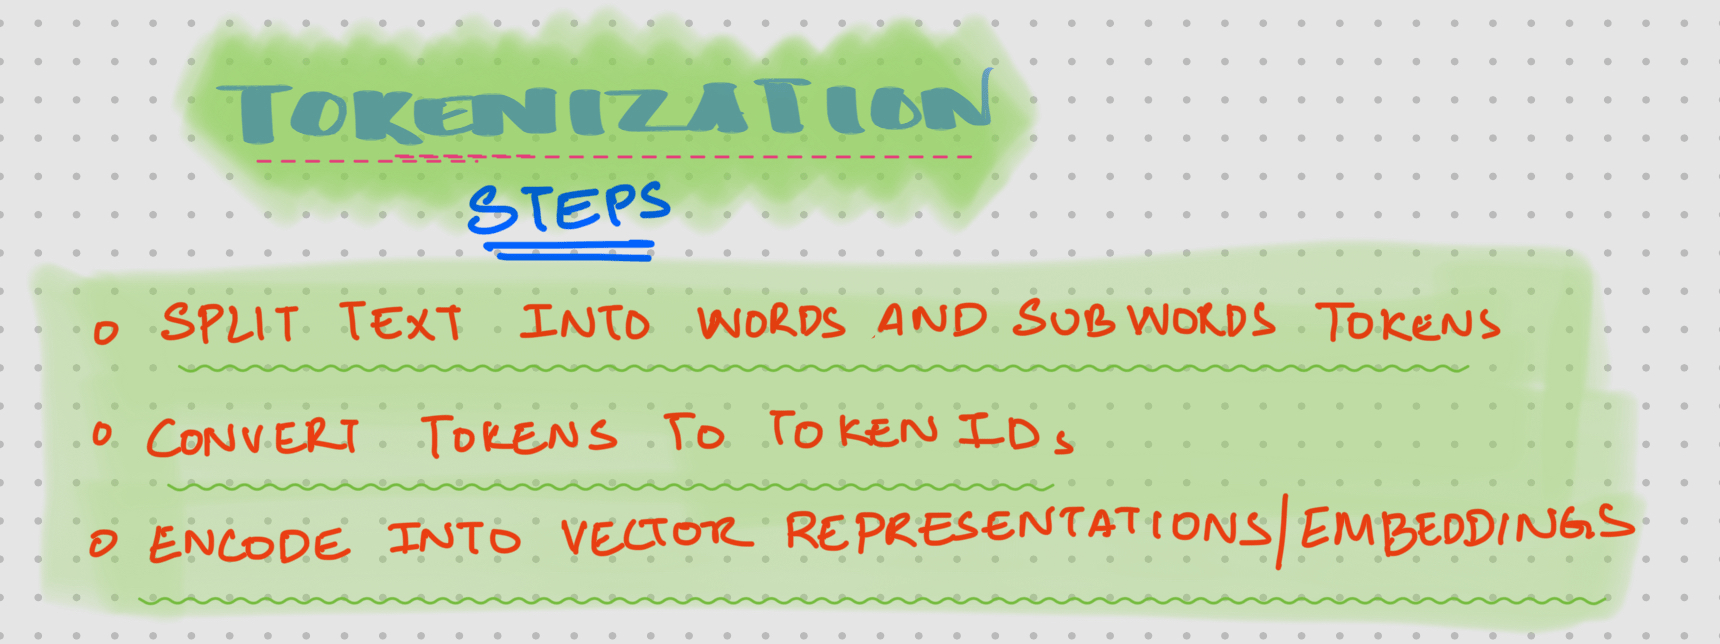 TOKENIZATION
STEPS
o SPLIT TEXT INTO WORDS AND SUBWORDS TOKENS
o CONVERT TOKENS TO TOKEN IDs
o ENCODE INTO VECTOR REPRESENTATIONS/EMBEDDINGS